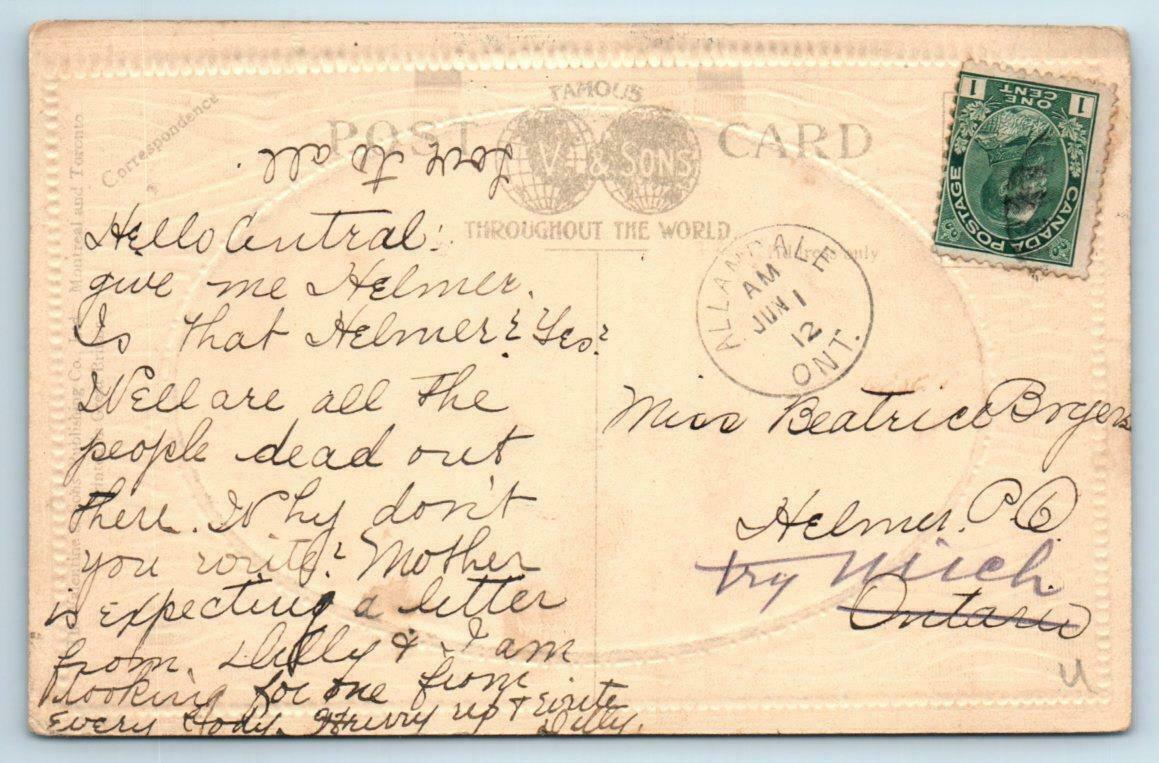 FAMOUS
POST CARD
V & SONS
THROUGHOUT THE WORLD
Correspondence
Address only
Montreal and Toronto
Publishing Co.
CANADA POSTAGE
1 1
ONE CENT
ALLANDALE
AM
JUN 1
12
ONT.
Love to all.
Hello Central:
give me Helmer.
Is that Helmer? Yes?
Well are all the
people dead out
there. Why don't
you write? Mother
is expecting a letter
from Dilly & I am
looking for one from
Every body. Hurry up & write
Dilly.
Miss Beatrice
Helmer. P.O.
try Mich
Ontario